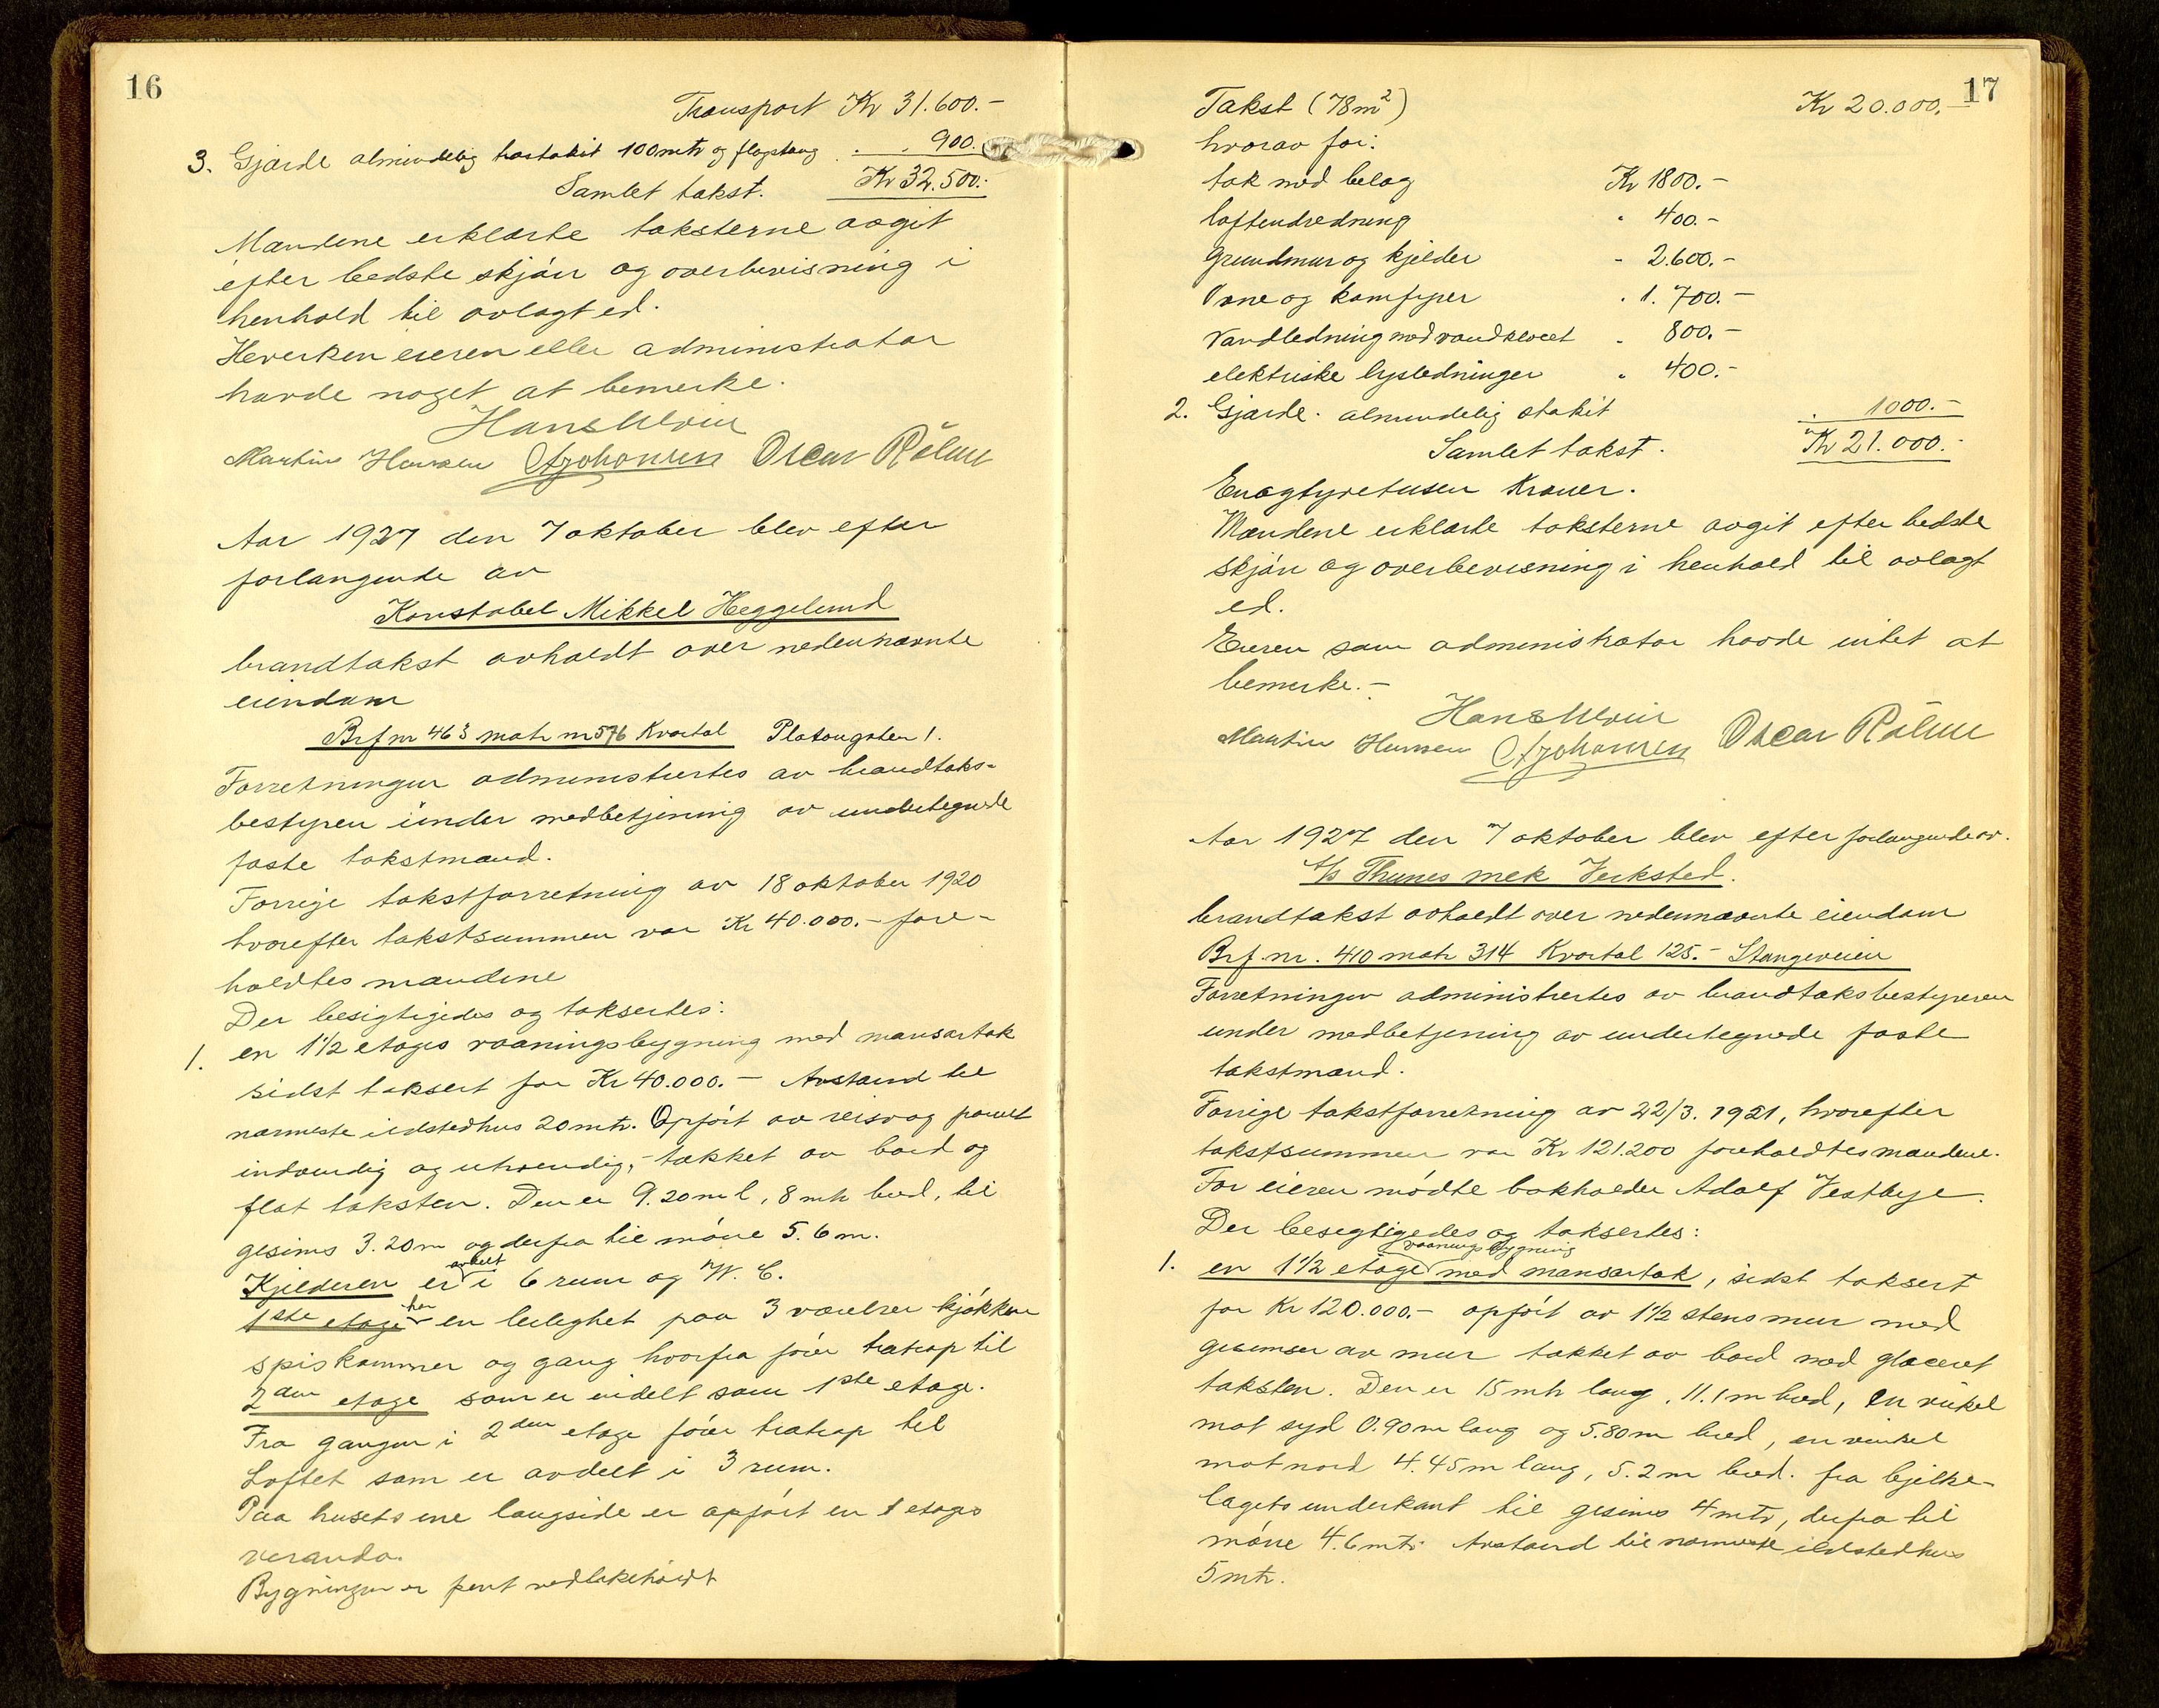 16
Transport Kr 31.600.-
3. Gjærde almindelig hastakit 100mtr og flagstang . . 900.-
Samlet takst. Kr 32.500.-
Mændene erklærte taksterne avgit
efter bedste skjøn og overbevisning i
henhold til avlagt ed.
Hverken eieren eller administrator
havde noget at bemerke.
Martin Hansen Oscar
Aar 1927 den 7 oktober blev efter
forlangende av
Konstabel Mikkel Heggelund
brandtakst avholdt over nedennævnte
eiendom
Brf nr 463 matr nr 576 Kvartal Platougaten 1.
Forretningen administrertes av brandtaks-
bestyren under medbetjening av undertegnede
faste takstmænd.
Forrige takstforretning av 18 oktober 1920
hvorefter takstsummen var Kr 40.000.- fore-
holdtes mændene
Der besigtigedes og taksertes:
1. en 1½ etages vaaningsbygning med mansartak
sidst taksert for Kr 40.000.- Avstand til
nærmeste ildstedhus 20 mtr. Opført av reisverk panelt
indvendig og utvendig, - tækket av bord og
flat taksten. Den er 9.20 m l, 8 mtr bred, til
gesims 3.20 m og derfra til møne 5.6 m.
Kjelderen er avdelt i 6 rum og W.C.
1ste etage har en leilighet paa 3 værelser kjøkken
spiskammer og gang hvorfra fører trætrap til
2den etage som er indelt som 1ste etage.
Fra gangen i 2den etage fører trætrap til
Loftet som er avdelt i 3 rum.
Paa husets ene langside er opført en 1 etages
veranda.
Bygningen er pent vedlikeholdt
17
Takst (78m²) Kr 20.000.-
hvorav for:
tak med belæg Kr 1800.-
loftendredning " 400.-
Grundmur og kjelder - 2.600.-
Ovne og komfyrer . 1.700.-
Vandledning med vandkloset . 800.-
elektriske lysledninger " 400.-
2. Gjærde. almindelig stakit . 1000.-
Samlet takst. Kr 21.000.-
Enogtyvetusen Kroner.
Mændene erklærte taksterne avgit efter bedste
skjøn og overbevisning i henhold til avlagt
ed.
Eieren som administrator havde intet at
bemerke.-
Martin Hansen Oscar
Aar 1927 den 7 oktober blev efter forlangende av.
A/s Thunes mek Verksted.
brandtakst avholdt over nedennævnte eiendom
Brf. nr. 410 matr 314 Kvartal 125.- Stangeveien
Forretningen administrertes av brandtaksbestyreren
under medbetjening av undertegnede faste
takstmænd.
Forrige takstforretning av 22/3. 1921, hvorefter
takstsummen var Kr 121.200 foreholdtes mændene.
For eieren mødte bokholder Adolf Vestbye.
Der besigtigedes og taksertes:
1. en 1½ etage vaaningsbygning med mansartak, sidst taksert
for Kr 120.000.- opført av 1½ stens mur med
gesimser av mur tækket av bord med glaceret
taksten. Den er 15 mtr lang, 11.1 m bred, en vinkel
mot syd 0.90 m lang og 5.80 m bred, en vinkel
mot nord 4.45 m lang, 5.2 m bred. fra bjelke-
lagets underkant til gesims 4 mtr, derfra til
møne 4.6 mtr. Avstand til nærmeste ildstedhus
5 mtr.